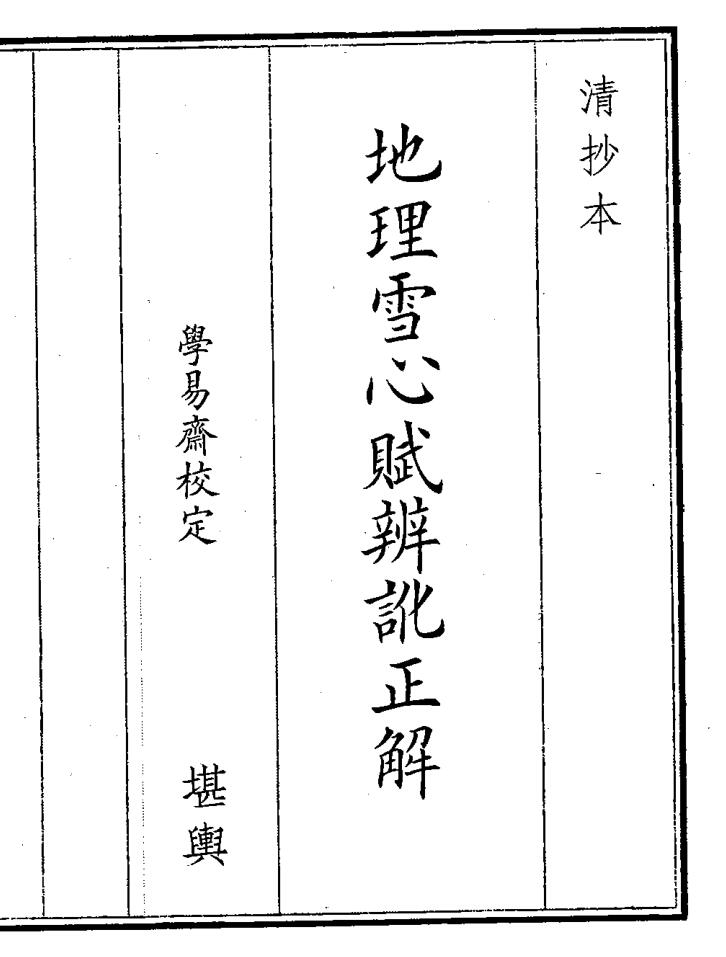 清抄本
地理雪心賦辨訛正解
學易齋校定
堪輿